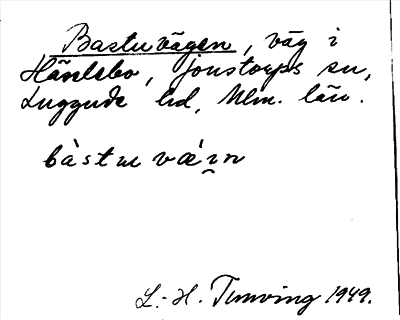 Bastuvägen, väg i
Hänlebo, Jonstorps sn,
Luggude hd, Mlm. län.
bàstu væ̀ı̯n
L.-H. Tunving 1949.